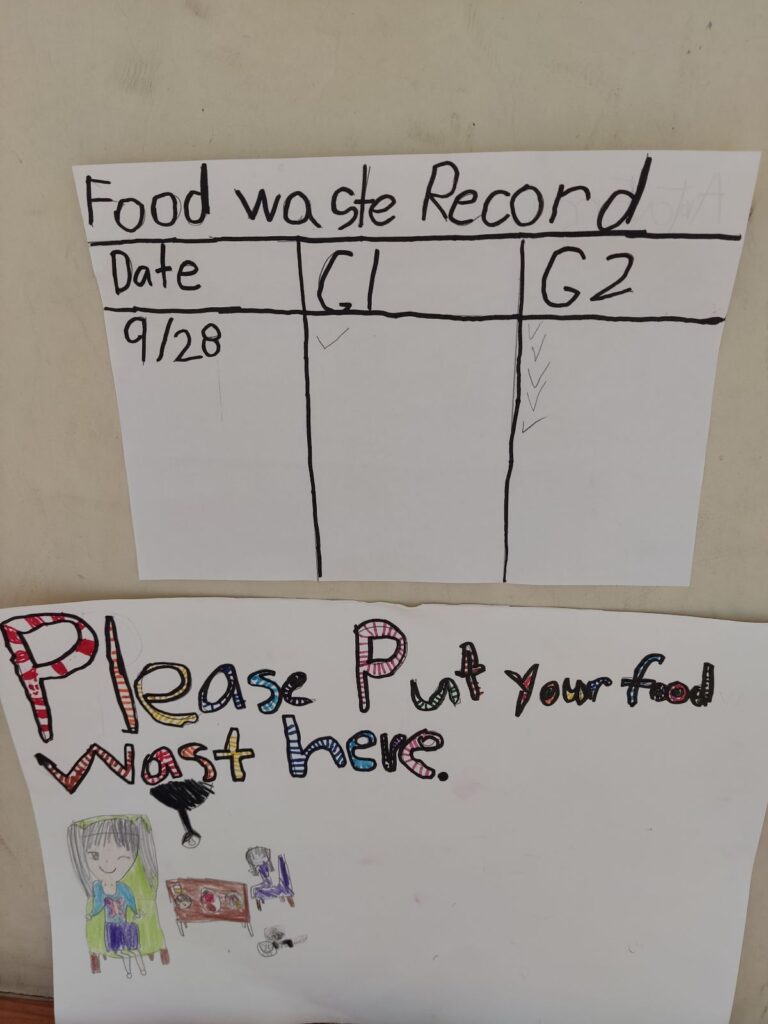 Food waste Record
Date G1 G2
9/28
Please Put your food
wast here.